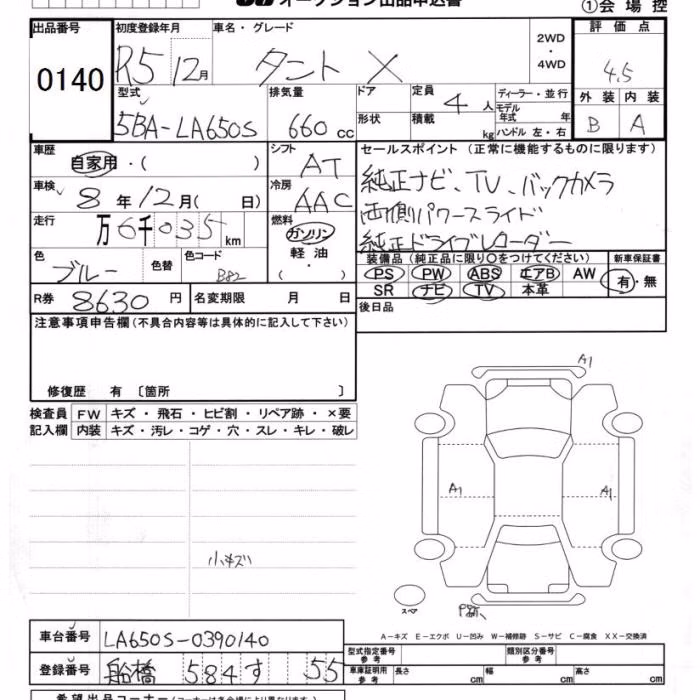 オークション出品申込書
①会場控
出品番号
0140
初度登録年月
R5 12月
車名・グレード
タント X
2WD
・
4WD
評価点
4.5
外装 内装
B A
型式
5BA-LA650S
排気量
660 cc
ドア
形状
定員
4 人
積載
kg
ディーラー・並行
モデル
年式 年
ハンドル 左・右
車歴
自家用・( )
シフト
AT
車検
8年12月( 日)
冷房
AAC
走行
万6千035km
燃料
ガソリン
軽油
( ・ )
色
ブルー
色替
色コード
B82
R券 8630 円
名変期限 月 日
セールスポイント(正常に機能するものに限ります)
純正ナビ、TV、バックカメラ
両側パワースライド
純正ドライブレコーダー
装備品(純正品に限り○をつけてください)
新車保証書
PS PW ABS エアB AW
SR ナビ TV 本革
有・無
後日品
注意事項申告欄(不具合内容等は具体的に記入して下さい)
修復歴 有 〔箇所 〕
検査員
記入欄
FW キズ・飛石・ヒビ割・リペア跡・×要
内装 キズ・汚レ・コゲ・穴・スレ・キレ・破レ
小キズ
A1
A1
A1
スペア
A-キズ E-エクボ U-凹み W-補修跡 S-サビ C-腐食 XX-交換済
車台番号
LA650S-0390140
登録番号
船橋 584 す 55
型式指定番号
参考
類別区分番号
参考
車庫証明用
参考
長さ cm
幅 cm
高さ cm
希望出品コーナー(コーナーは各会場により異なります)